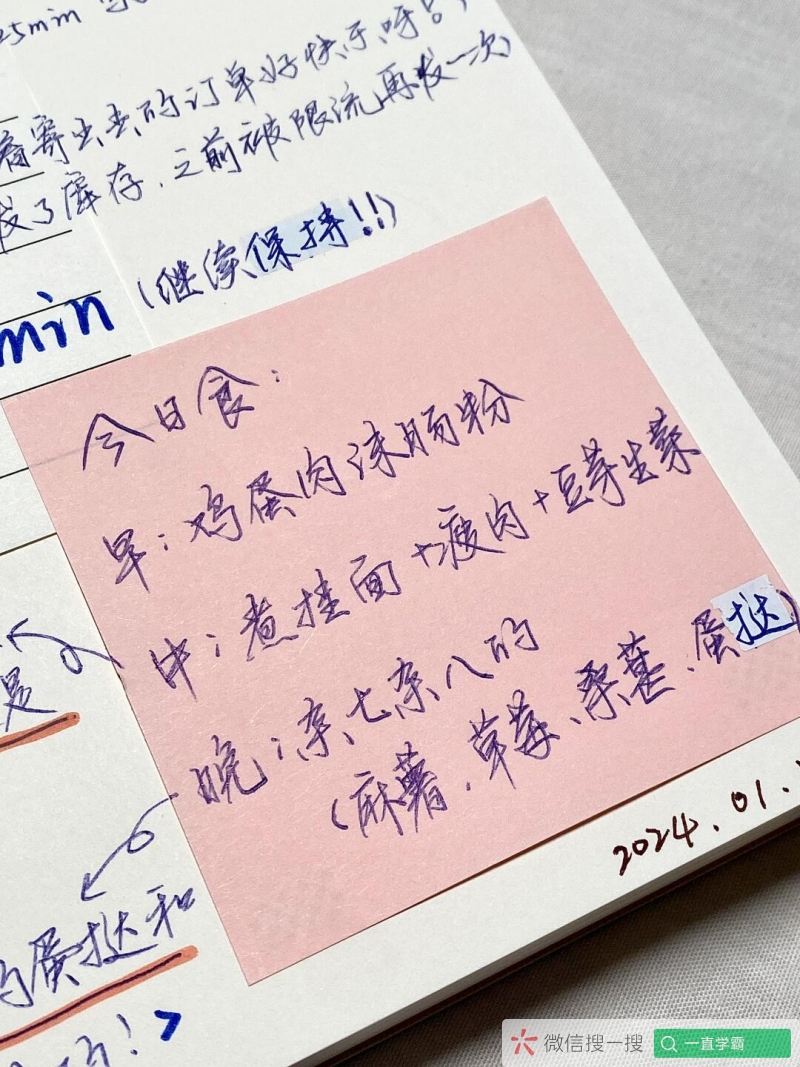 25min
着寄出去的订单好快乐呀
了库存,之前被限流再发一次)
min (继续保持!!)
今日食:
早:鸡蛋肉沫肠粉
中:煮挂面+瘦肉+豆芽生菜
晚:杂七杂八的
(麻薯、草莓、桑葚、蛋挞)
2024.01.
是
蛋挞和
!>
微信搜一搜 一直学霸